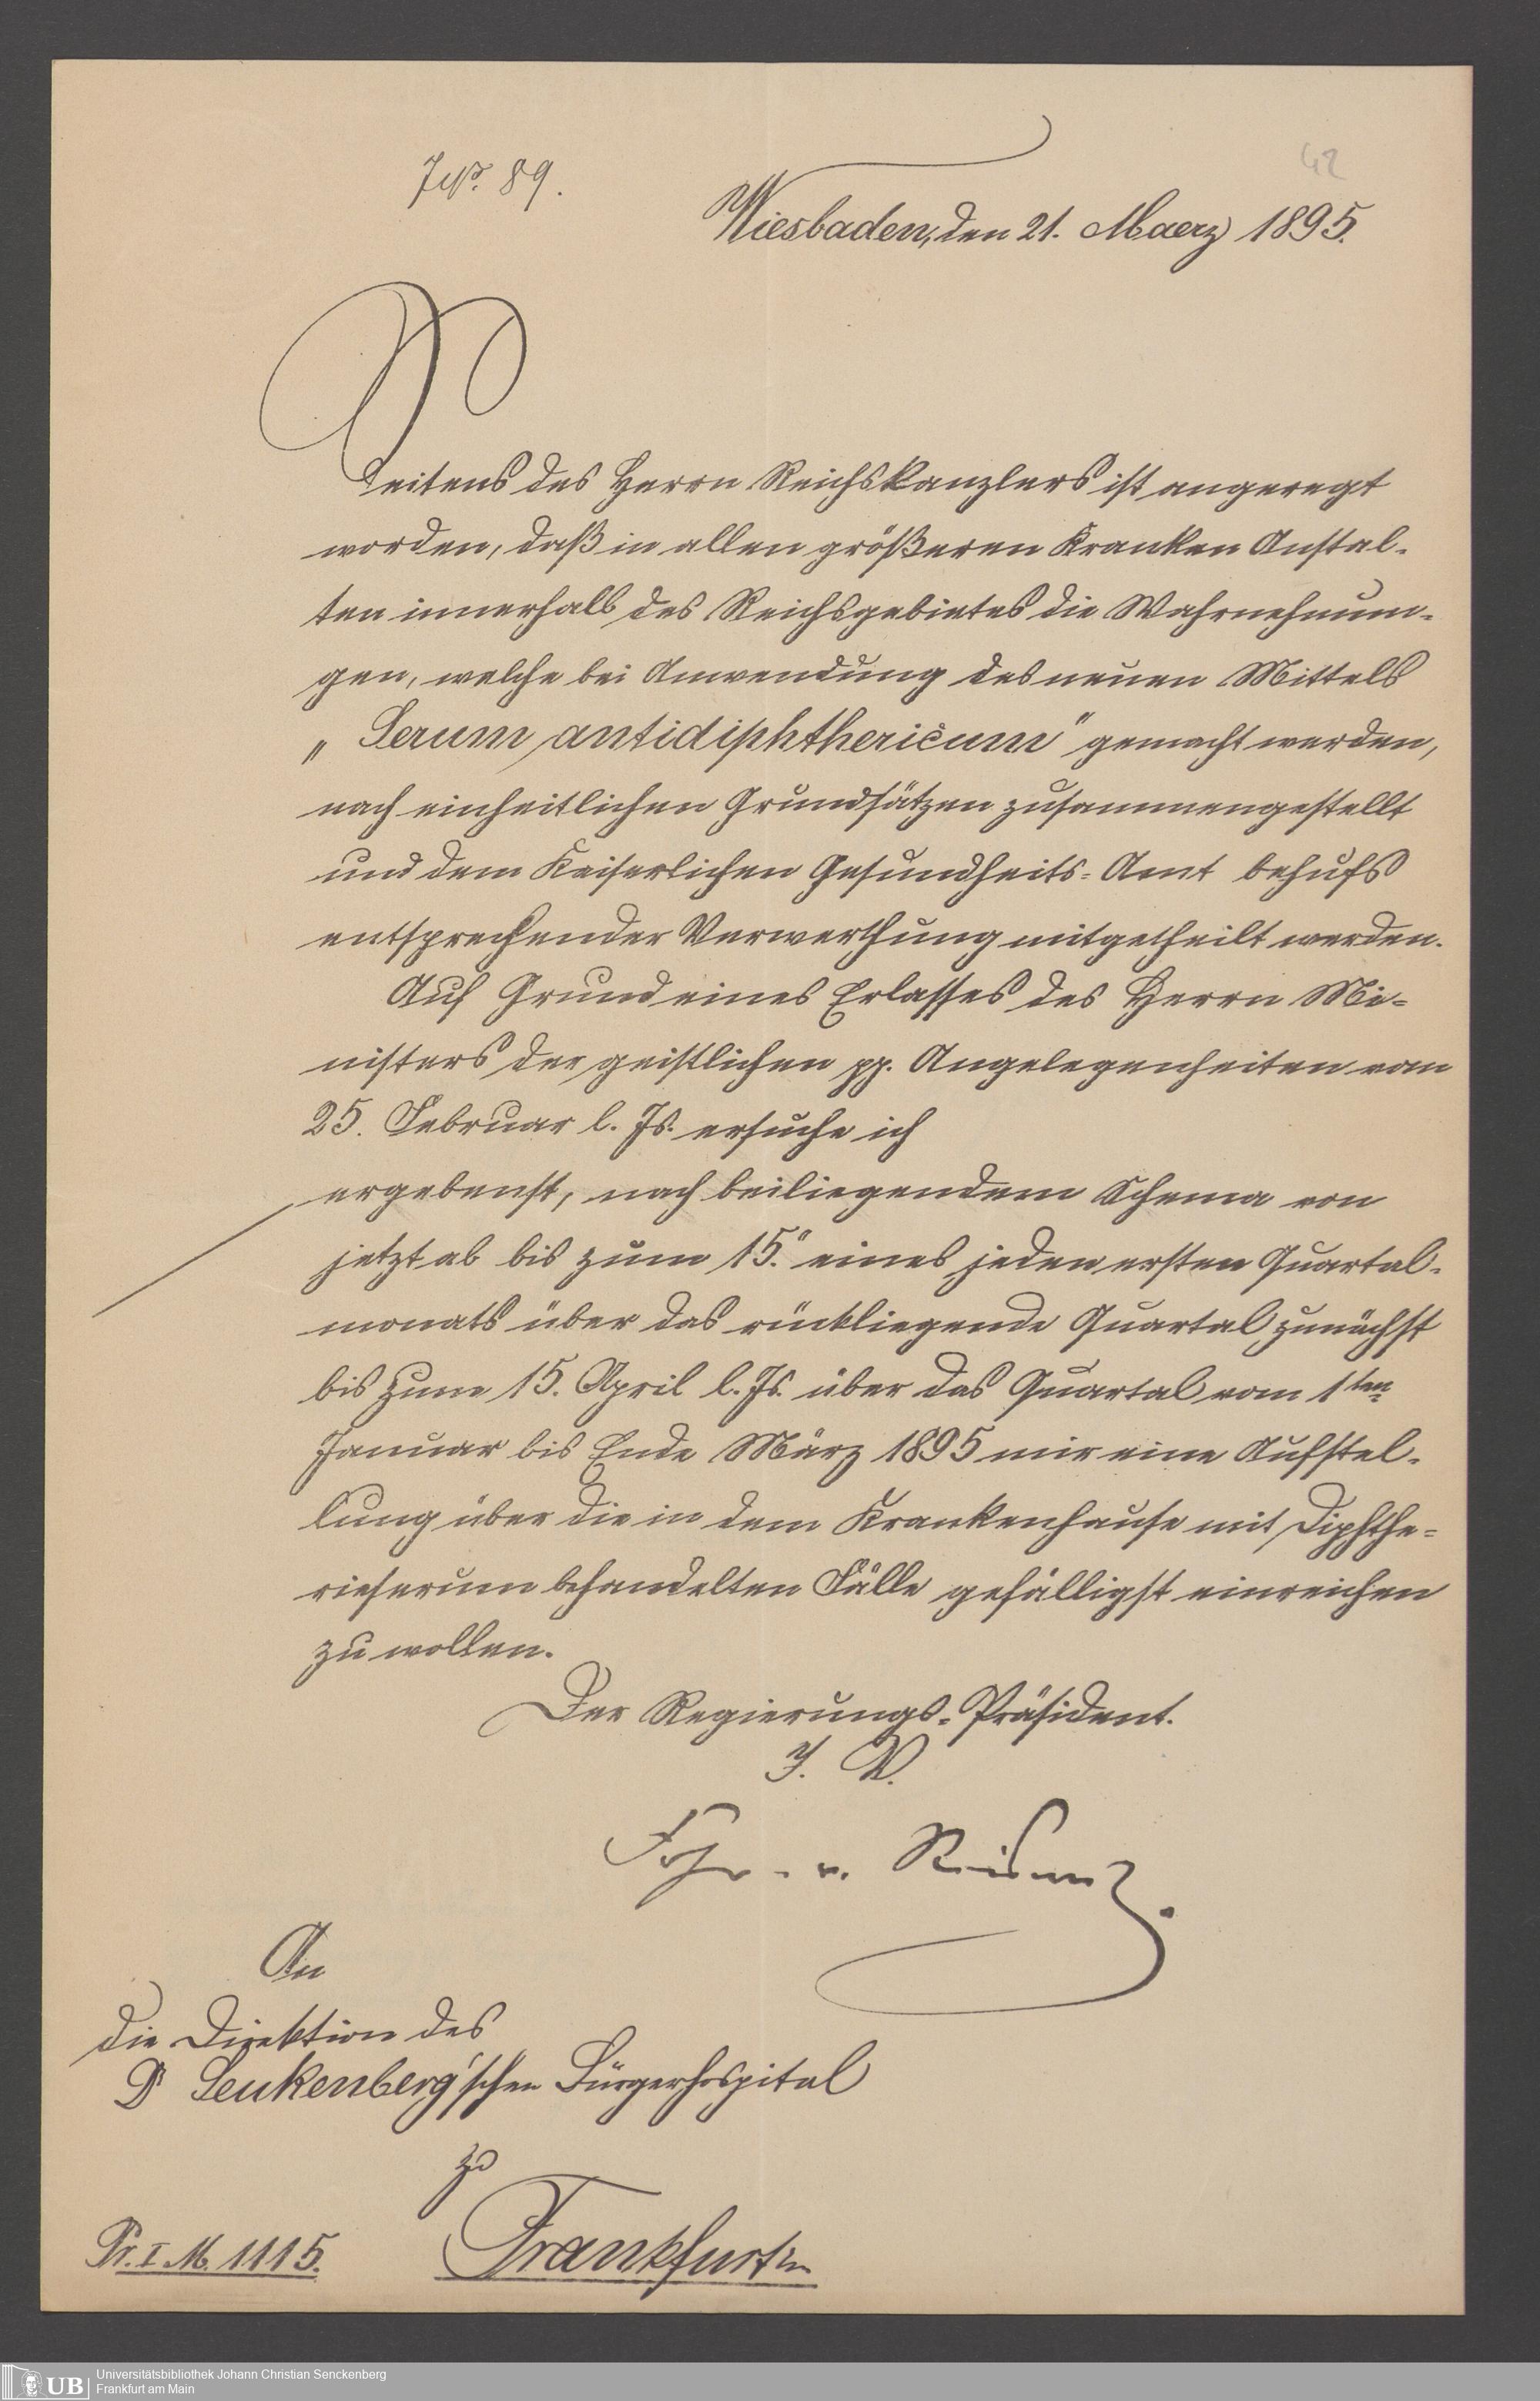 J№. 89.
42
Wiesbaden, den 21. Maerz 1895.
Seitens des Herrn Reichskanzlers ist angeregt
worden, daß in allen größeren Kranken Anstal-
ten innerhalb des Reichsgebietes die Wahrnehmun-
gen, welche bei Anwendung des neuen Mittels
„Serum antidiphthericum" gemacht werden,
nach einheitlichen Grundsätzen zusammengestellt
und dem Kaiserlichen Gesundheits-Amt behufs
entsprechender Verwerthung mitgetheilt werden.
Auf Grund eines Erlasses des Herrn Mi-
nisters der geistlichen pp. Angelegenheiten vom
25. Februar l. Js. ersuche ich
ergebenst, nach beiliegendem Schema von
jetzt ab bis zum 15. eines jeden ersten Quartal-
monats über das rückliegende Quartal zunächst
bis zum 15. April l. Js. über das Quartal vom 1ten
Januar bis Ende März 1895 mir eine Aufstel-
lung über die in dem Krankenhause mit Diphthe-
rieserum behandelten Fälle gefälligst einreichen
zu wollen.
Der Regierungs-Präsident.
J. V.
Frhr. v.
An
die Direktion des
Dr Senkenberg'schen Bürgerhospital
zu
Frankfurt
Pr. I. M. 1115.
UB
Universitätsbibliothek Johann Christian Senckenberg
Frankfurt am Main